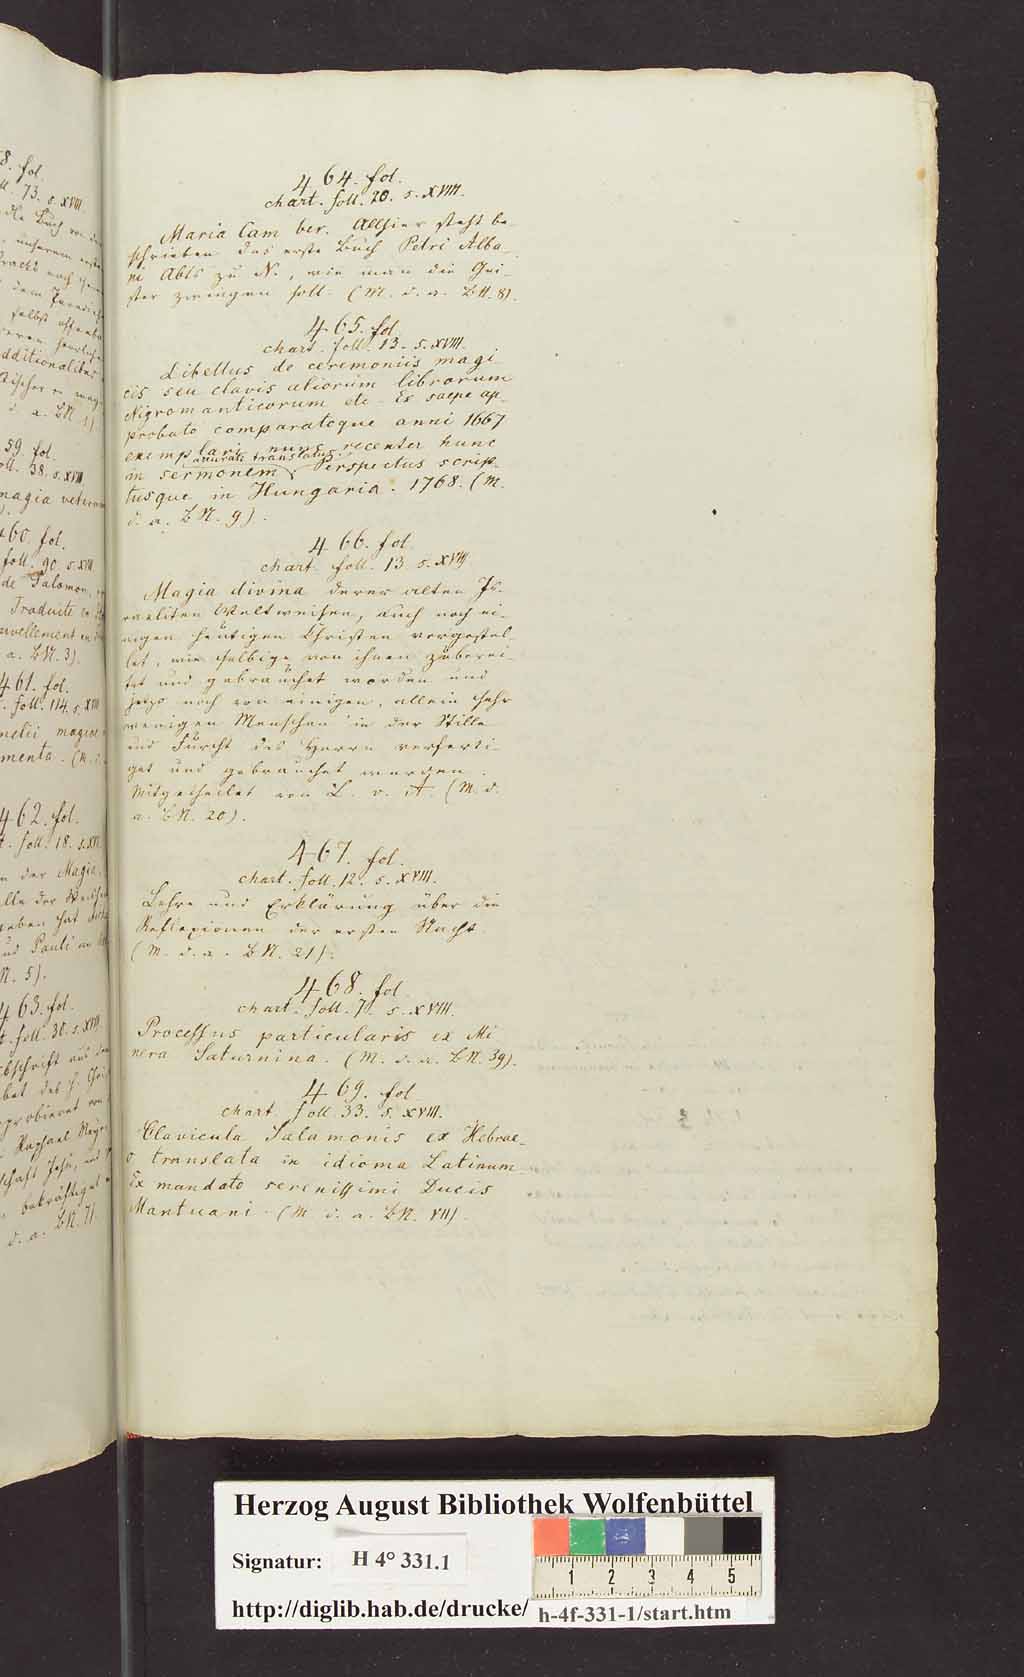 8. fol.
ll. 73. s. XVIII.
59. fol.
oll. 38. s. XVIII
magia veterum
60. fol.
foll. 90. s. XVIII.
de Salomon,
Traduite en
uvellement en
a. LN. 3).
461. fol.
foll. 114. s. XVIII
netii, magiae
menta. (M. d.
462. fol.
t. foll. 18. s. XVIII
der Magia
und Pauli an
N. 5).
463. fol.
t. foll. 30. s. XVIII
d. a. LN. 7).
464. fol.
chart. foll. 20. s. XVIII.
Maria Cam ber. Allhier steht be
schrieben das erste Buch Petri Alba-
ni Abts zu N., wie man die Gei-
ster zwingen soll. (M. d. a. LN. 8).
465. fol.
chart. foll. 13. s. XVIII.
Libellus de ceremoniis magi
cis seu clavis aliorum librorum
Nigromanticorum etc. Ex saepe ap-
probato comparatoque anni 1667
exemplari nunc recenter hunc
accurate translatus
in sermonem Perspectus scrip-
tusque in Hungaria. 1768. (M.
d. a. LN. 9).
466. fol.
chart. foll. 13 s. XVIII
Magia divina derer alten Is-
raeliten Weltweisen, auch noch ei-
nigen heutigen Christen vorgestel
let, wie selbige von ihnen zuberei-
tet und gebrauchet worden und
jetzo noch von einigen, allein sehr
wenigen Menschen in der Stille
und Furcht des Herrn verferti-
get und gebrauchet werden.
Mitgetheilet von L. v. A. (M. d.
a. LN. 20).
467. fol.
chart. foll. 12. s. XVIII.
Lehre und Erklärung über die
Reflexionen der ersten Nacht.
(M. d. a. LN. 21).
468. fol
chart. foll. 7. s. XVIII.
Processus particularis ex Mi
nera Saturnina. (M. d. a. LN. 39).
469. fol
chart. foll. 33. s. XVIII.
Clavicula Salamonis ex Hebrae-
o translata in idioma Latinum
Ex mandato serenissimi Ducis
Mantuani. (M. d. a. LN. VII).
Herzog August Bibliothek Wolfenbüttel
Signatur: H 4° 331.1
1 2 3 4 5
http://diglib.hab.de/drucke/ h-4f-331-1/start.htm